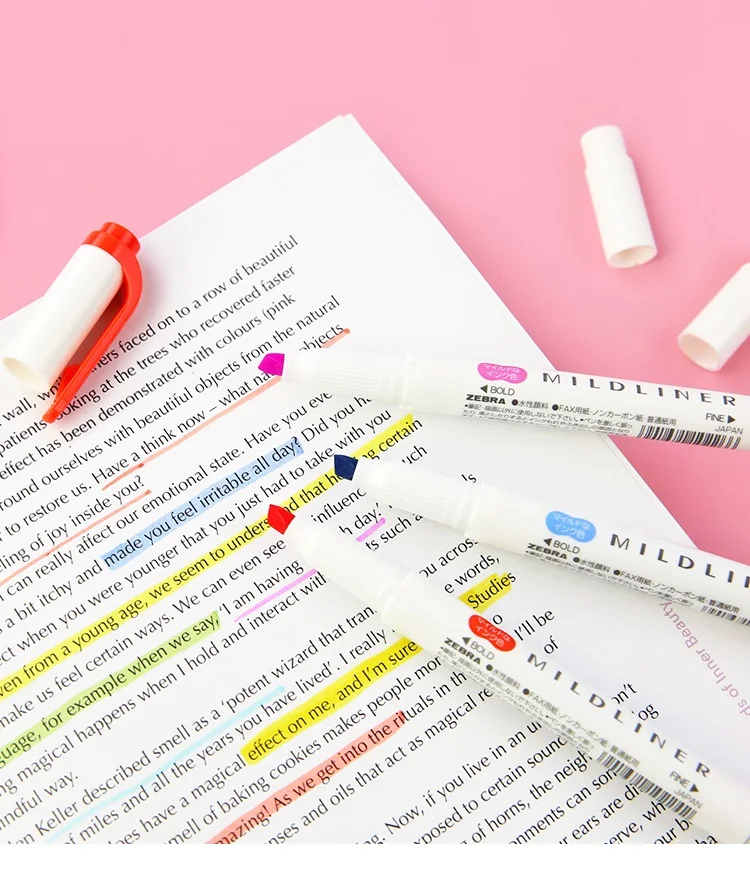 faced on to a row of beautiful
patients looking at the trees who recovered faster
effect has been demonstrated with colours (pink
round ourselves with beautiful objects from the natural
to restore us. Have a think now – what objects
ling of joy inside you?
can really affect our emotional state. Have you eve
a bit itchy and made you feel irritable all day? Did you h
ect when you were younger that you just had to take with you
ven from a young age, we seem to understand that certain
make us feel certain ways. We can even see influenc such
guage, for example when we say, 'I am having h day'. ts such a
ng magical happens when I hold and interact with you across
e words, Studies
n Keller described smell as a 'potent wizard that tran I'll be
of miles and all the years you have lived'. I really of
does have a magical effect on me, and I'm sure n't
smell of baking cookies makes people mor og
mazing! As we get into the rituals in th
nses and oils that act as magical re
Now, if you live in an u
xposed to certain soun
g of horns, the neigh
onments can
ur ears are di
indful way.
ds of Inner Beauty
マイルドな
インク色
◀BOLD
MILDLINER
ZEBRA ●水性顔料 ●FAX用紙・ノンカーボン紙・普通紙用
FINE▶
JAPAN
マイルドな
インク色
◀BOLD
MILDLIN
ZEBRA ●水性顔料 ●FAX用紙・ノンカーボン紙・普通紙用
マイルドな
インク色
◀BOLD
MILDLINER
ZEBRA ●水性顔料 ●FAX用紙・ノンカーボン紙・普通紙用
FINE▶
JAPAN